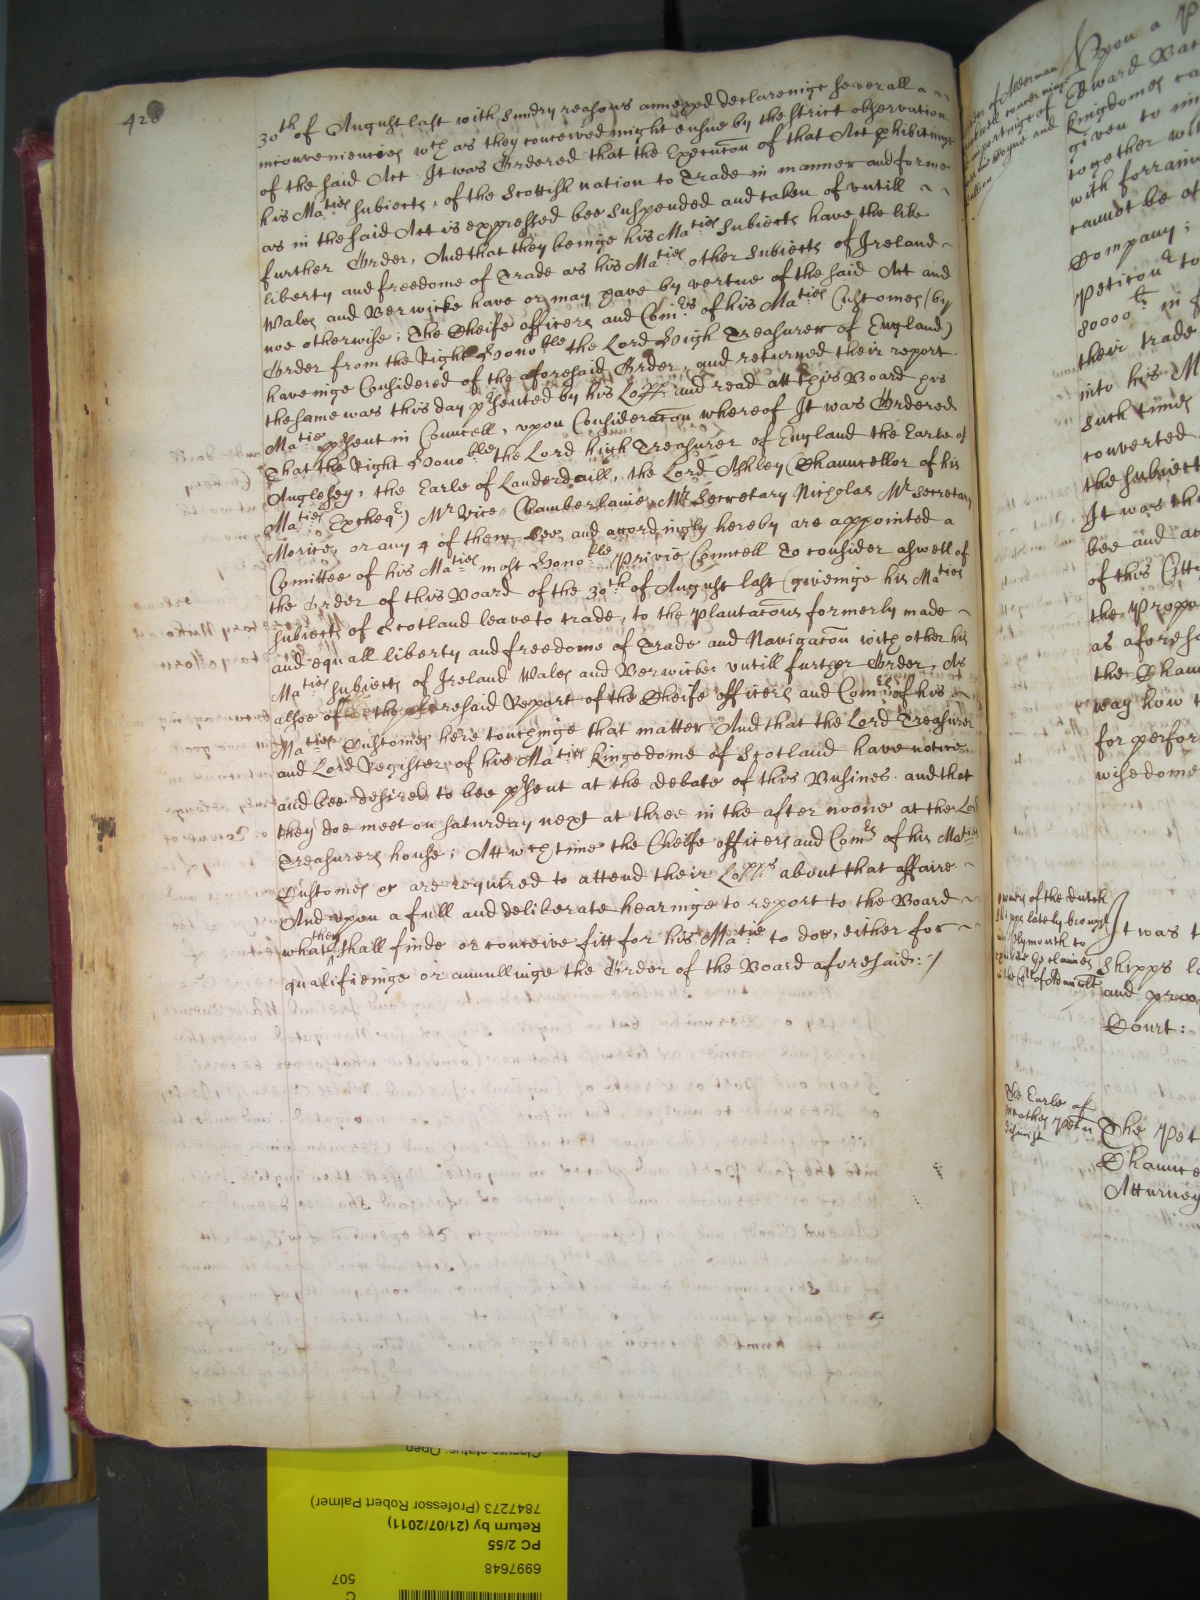 428
30th of August last with sundry reasons annexed declareinge severall
inconveniencies wch as they conceived might ensue by the strict observation
of the said Act It was Ordered that the Execucon of that Act phibitinge
his Maties subiects, of the Scottish nation to Trade in manner and forme
as in the said Act is expressed bee suspended and taken of untill
further Order, And that they beinge his Maties Subiects have the like
liberty and freedome of Trade as his Maties other Subiects of Ireland
Wales and Berwicke have or may have by vertue of the said Act and
noe otherwise; The Cheife officers and Comrs of his Maties Customes (by
Order from the Right Honoble the Lord High Treasurer of England)
haveinge Considered of the aforesaid Order, and returned their report
the same was this day psented by his Lopp: and read att this Board his
Matie psent in Councell, upon Consideracon whereof It was Ordered
That the Right Honoble the Lord high Treasurer of England the Earle of
Anglesey, the Earle of Lauderdaill, the Lord Ashley (Chauncellor of his
Maties Excheqr) Mr Vice-Chamberlaine, Mr Secretary Nicholas Mr Secretary
Morice, or any 4 of them bee, and accordingly hereby are appointed a
Comittee of his Maties most Honoble Privie Councell To consider aswell of
the Order of this Board of the 30th of August last (giveinge his Maties
subiects of Scotland leave to trade, to the Plantacons formerly made
and equall liberty and freedome of Trade and Navigacon with other his
Maties subiects of Ireland Wales and Berwicke untill further Order, As
alsoe of the aforesaid Report of the Cheife officers and Comrs of his
Maties Customes here touchinge that matter And that the Lord Treasurer
and Lord Register of his Maties Kingedome of Scotland have notice
and bee desired to bee psent at the debate of this Busines. and that
they doe meet on Saturday next at three in the after noone at the Lord
Treasurers house; Att wch time the Cheife officers and Comrs of his Maties
Customes are required to attend their Lopps about that affaire
And upon a full and deliberate hearinge to report to the Board
what they shall finde or conceive fitt for his Matie to doe, either for
qualifieinge or annullinge the Order of the Board aforesaid:/
of Alderman
Upon a
Edward
Kingdomes
given to
together
with forraine
cannot be
Company;
Peticon to
80000 li in
their trade
into his
such times
converted
the subiect
It was
bee and
of this Citty
the
as
the
way how
for perfor
wisedome
of the Dutch
lately brought
Plymouth to
It was
shipps
and
Court:
The Earle of
The Pet
Chaunce
Attorney
Closure status: Open
7847273 (Professor Robert Palmer)
Return by (21/07/2011)
PC 2/55
6997648
507
C